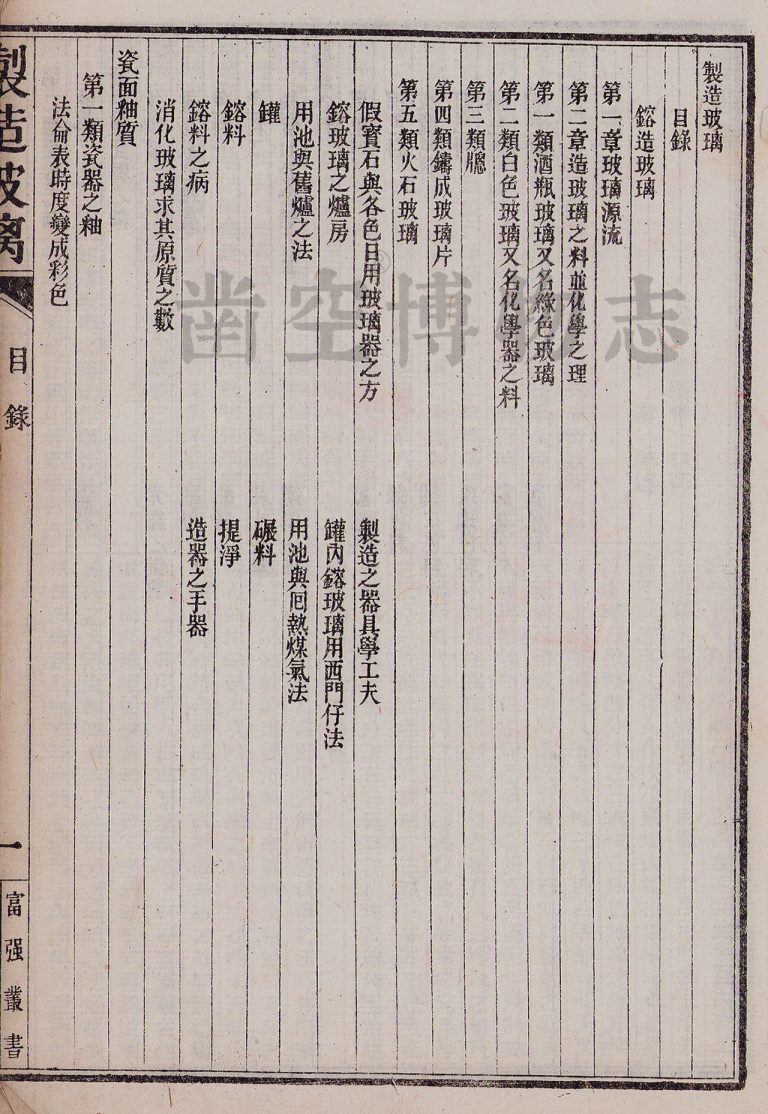 製造玻璃
目錄
鎔造玻璃
第一章玻璃源流
第二章造玻璃之料並化學之理
第一類酒瓶玻璃又名綠色玻璃
第二類白色玻璃又名化學器之料
第三類牕
第四類鑄成玻璃片
第五類火石玻璃
假寶石與各色日用玻璃器之方
製造之器具學工夫
鎔玻璃之爐房
罐內鎔玻璃用西門仔法
用池與舊爐之法
用池與囘熱煤氣法
罐
碾料
鎔料
提淨
鎔料之病
造器之手器
消化玻璃求其原質之數
瓷面釉質
第一類瓷器之釉
法倫表時度變成彩色
製造玻璃
目錄
一
富强叢書
凿空博物志